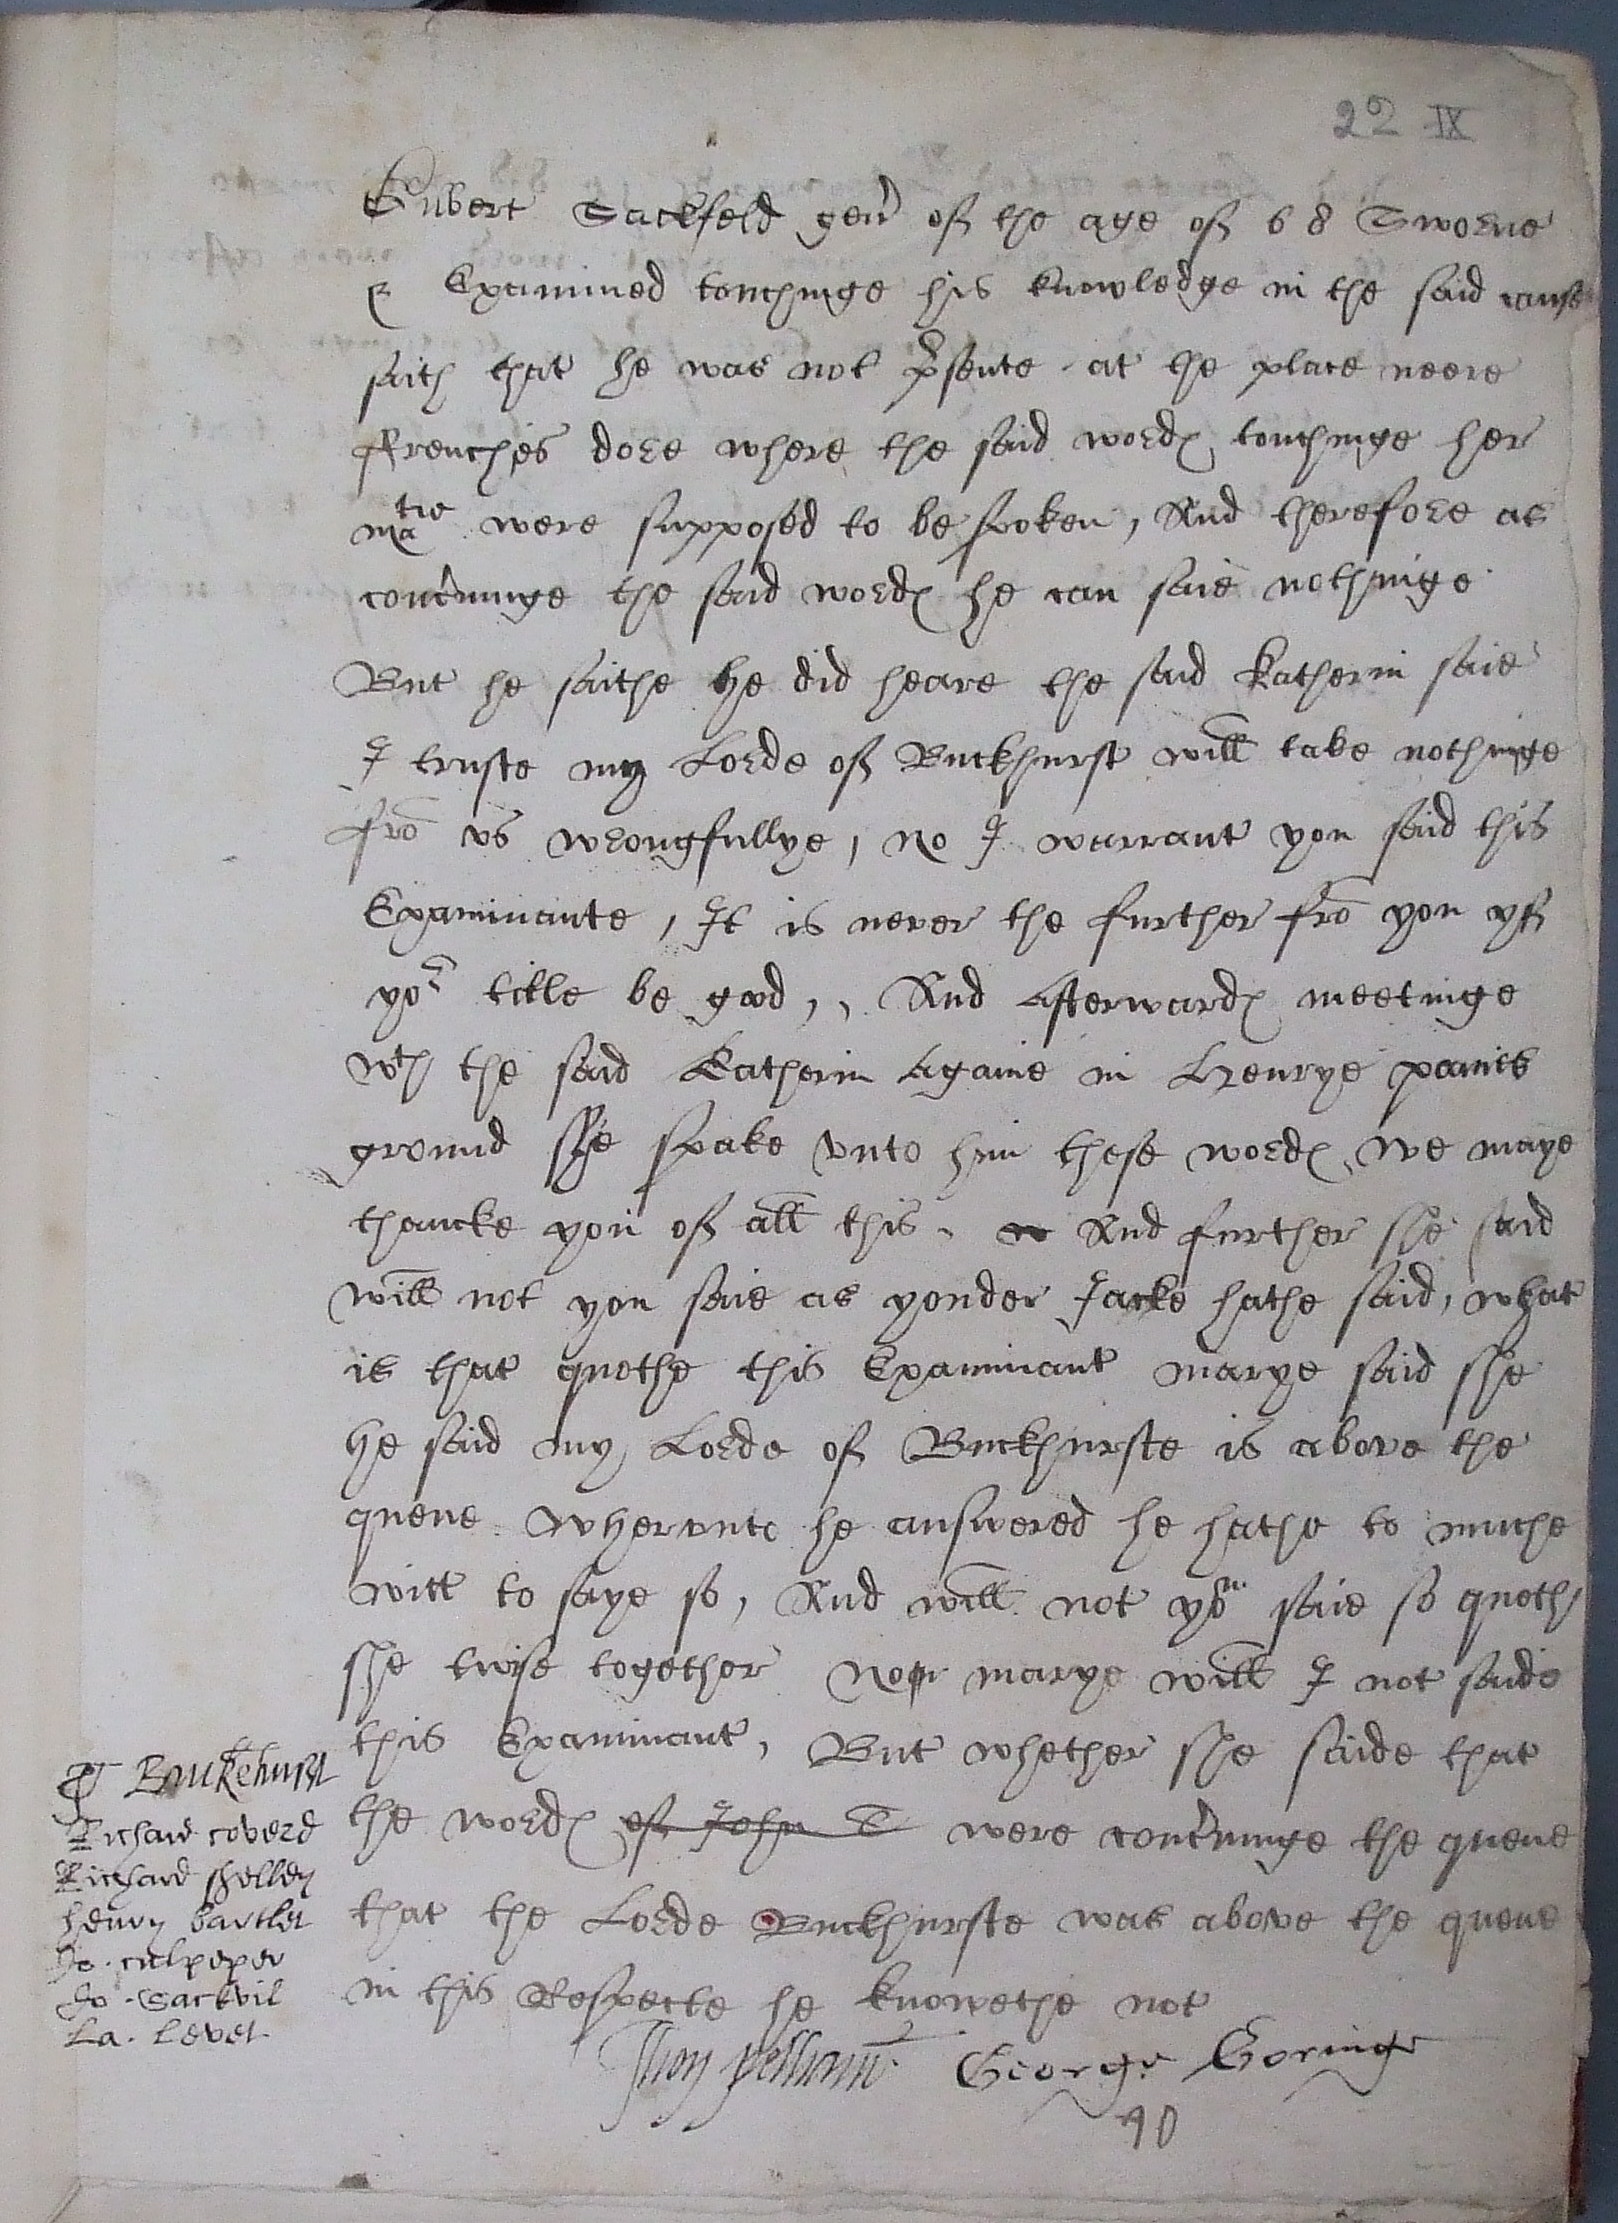 22 IX
Gilbert Sackfeld gen of the age of 68 Sworne
& Examined touchinge his knowledge in the said cause
saith that he was not psente at the place neere
ffrenches dore where the said words touchinge her
matie were supposed to be spoken, And therefore as
concninge the said words he can saie nothinge
But he saithe he did heare the said Katherin saie
I truste my Lorde of Buckhurst will take nothinge
fro vs wrongfullye, no I warrant you said this
Examinante, It is never the further fro you yf
yor title be good,, And Afterwards meetinge
wth the said Katherin Againe in Henrye
ground she spake vnto him these words, we maye
thancke you of all this. And further she said
will not you saie as yonder Jacke hathe said, what
is that quothe this Examinant marye said she
he said my Lorde of Buckhurste is above the
quene. Whervnto he answered he hathe to muche
witt to saye so, And will not you saie so quoth
she twise together Nop marye will I not saide
this Examinant, But whether she saide that
the words of John S were concninge the quene
that the Lorde Buckhurste was above the quene
in this Respecte he knowethe not
T Buckehurst
Richard coverd
Richard shelley
henry bartlet
Jo. culpeper
Jo. Sackvil
La. Levet
Thoms pelham George Goringe
40